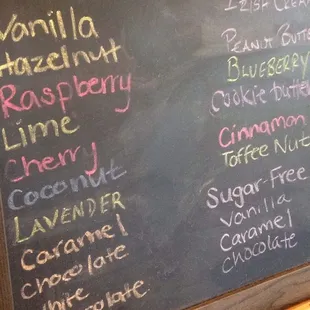 Vanilla
Hazelnut
Raspberry
Lime
Cherry
Coconut
LAVENDER
Caramel
Chocolate
White
Chocolate
IRISH CREAM
PEANUT BUTTE
BLUEBERRY
Cookie butter
Cinnamon
Toffee Nut
Sugar-Free
Vanilla
Caramel
chocolate